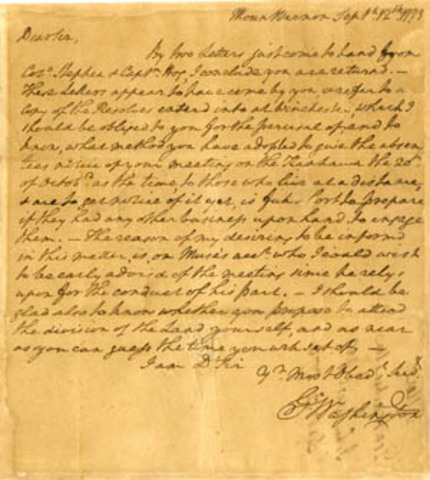 Mount Vernon Sept.r 12th 1773
Dear Sir,
By two Letters just come to hand from
Col.o Stephen & Capt.n Hog I conclude you are returned. —
These Letters appear to have come by you & refer to a
copy of the Resolves enterd into at Winchester, which I
should be obliged to you for the perusal of; and to
know, what method you have adopted to give the absen
tees notice of your meeting on the Kanhawa the 20th
of Octob.r as the time, to those who live at a distance,
& are to get notice of it yet, is short to prepare
if they had any other business upon hand to engage
them. — The reason of my desiring to be informd
in this matter, is, on Muse's acct. who I could wish
to be early advised of the meeting since he relys
upon for the conduct of his part. — I should be
glad also to know whether you propose to attend
the division of the Land yourself, and as near
as you can guess the time you wh set of —
I am Dr Sir
Yr Most Obedt. Servt.
Go Washington